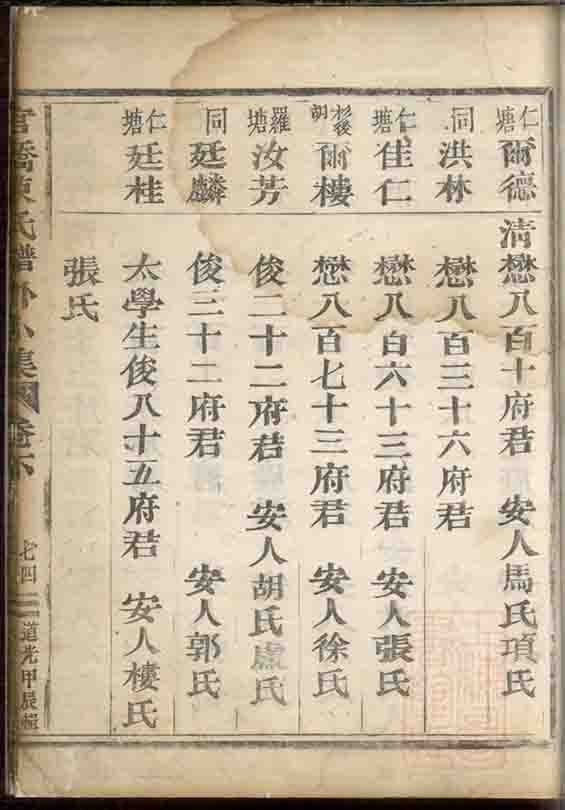 仁塘 爾德 清懋八百十府君 安人馬氏項氏
同 洪林 懋八百三十六府君
仁塘 佳仁 懋八百六十三府君 安人張氏
爾樓 懋八百七十三府君 安人徐氏
羅塘 汝芳 俊二十二府君 安人胡氏盧氏
同 廷麟 俊三十二府君 安人郭氏
仁塘 廷桂 太學生俊八十五府君 安人樓氏
張氏
氏譜外集 七四 道光甲辰輯